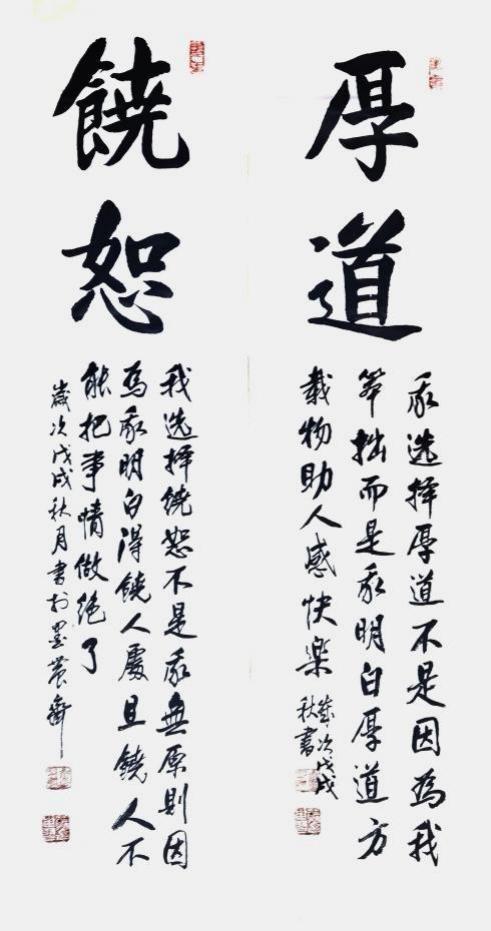 厚道
我选择厚道不是因為我
笨拙而是我明白厚道方
載物助人感快樂
歲次戊戌
秋書
饒恕
我选择饒恕不是我無原則因
為我明白得饒人處且饒人不
能把事情做绝了
歲次戊戌秋月書於墨農齋